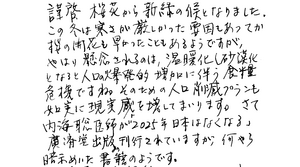 謹啓 桜花から新緑の候となりました。
この冬は寒さが厳しかった要因もあってか
桜の開花も早かったこともあるようですが、
やはり懸念されるのは、温暖化し砂漠化
となると人口の爆発的増加に伴う食糧
危機ですね。そのための人口削減プランも
如実に現実感を模してまいります。さて
内海聡医師が"2025年日本はなくなる"
廣済堂出版刊行されていますが 何やら
暗示めいた書籍のようです。